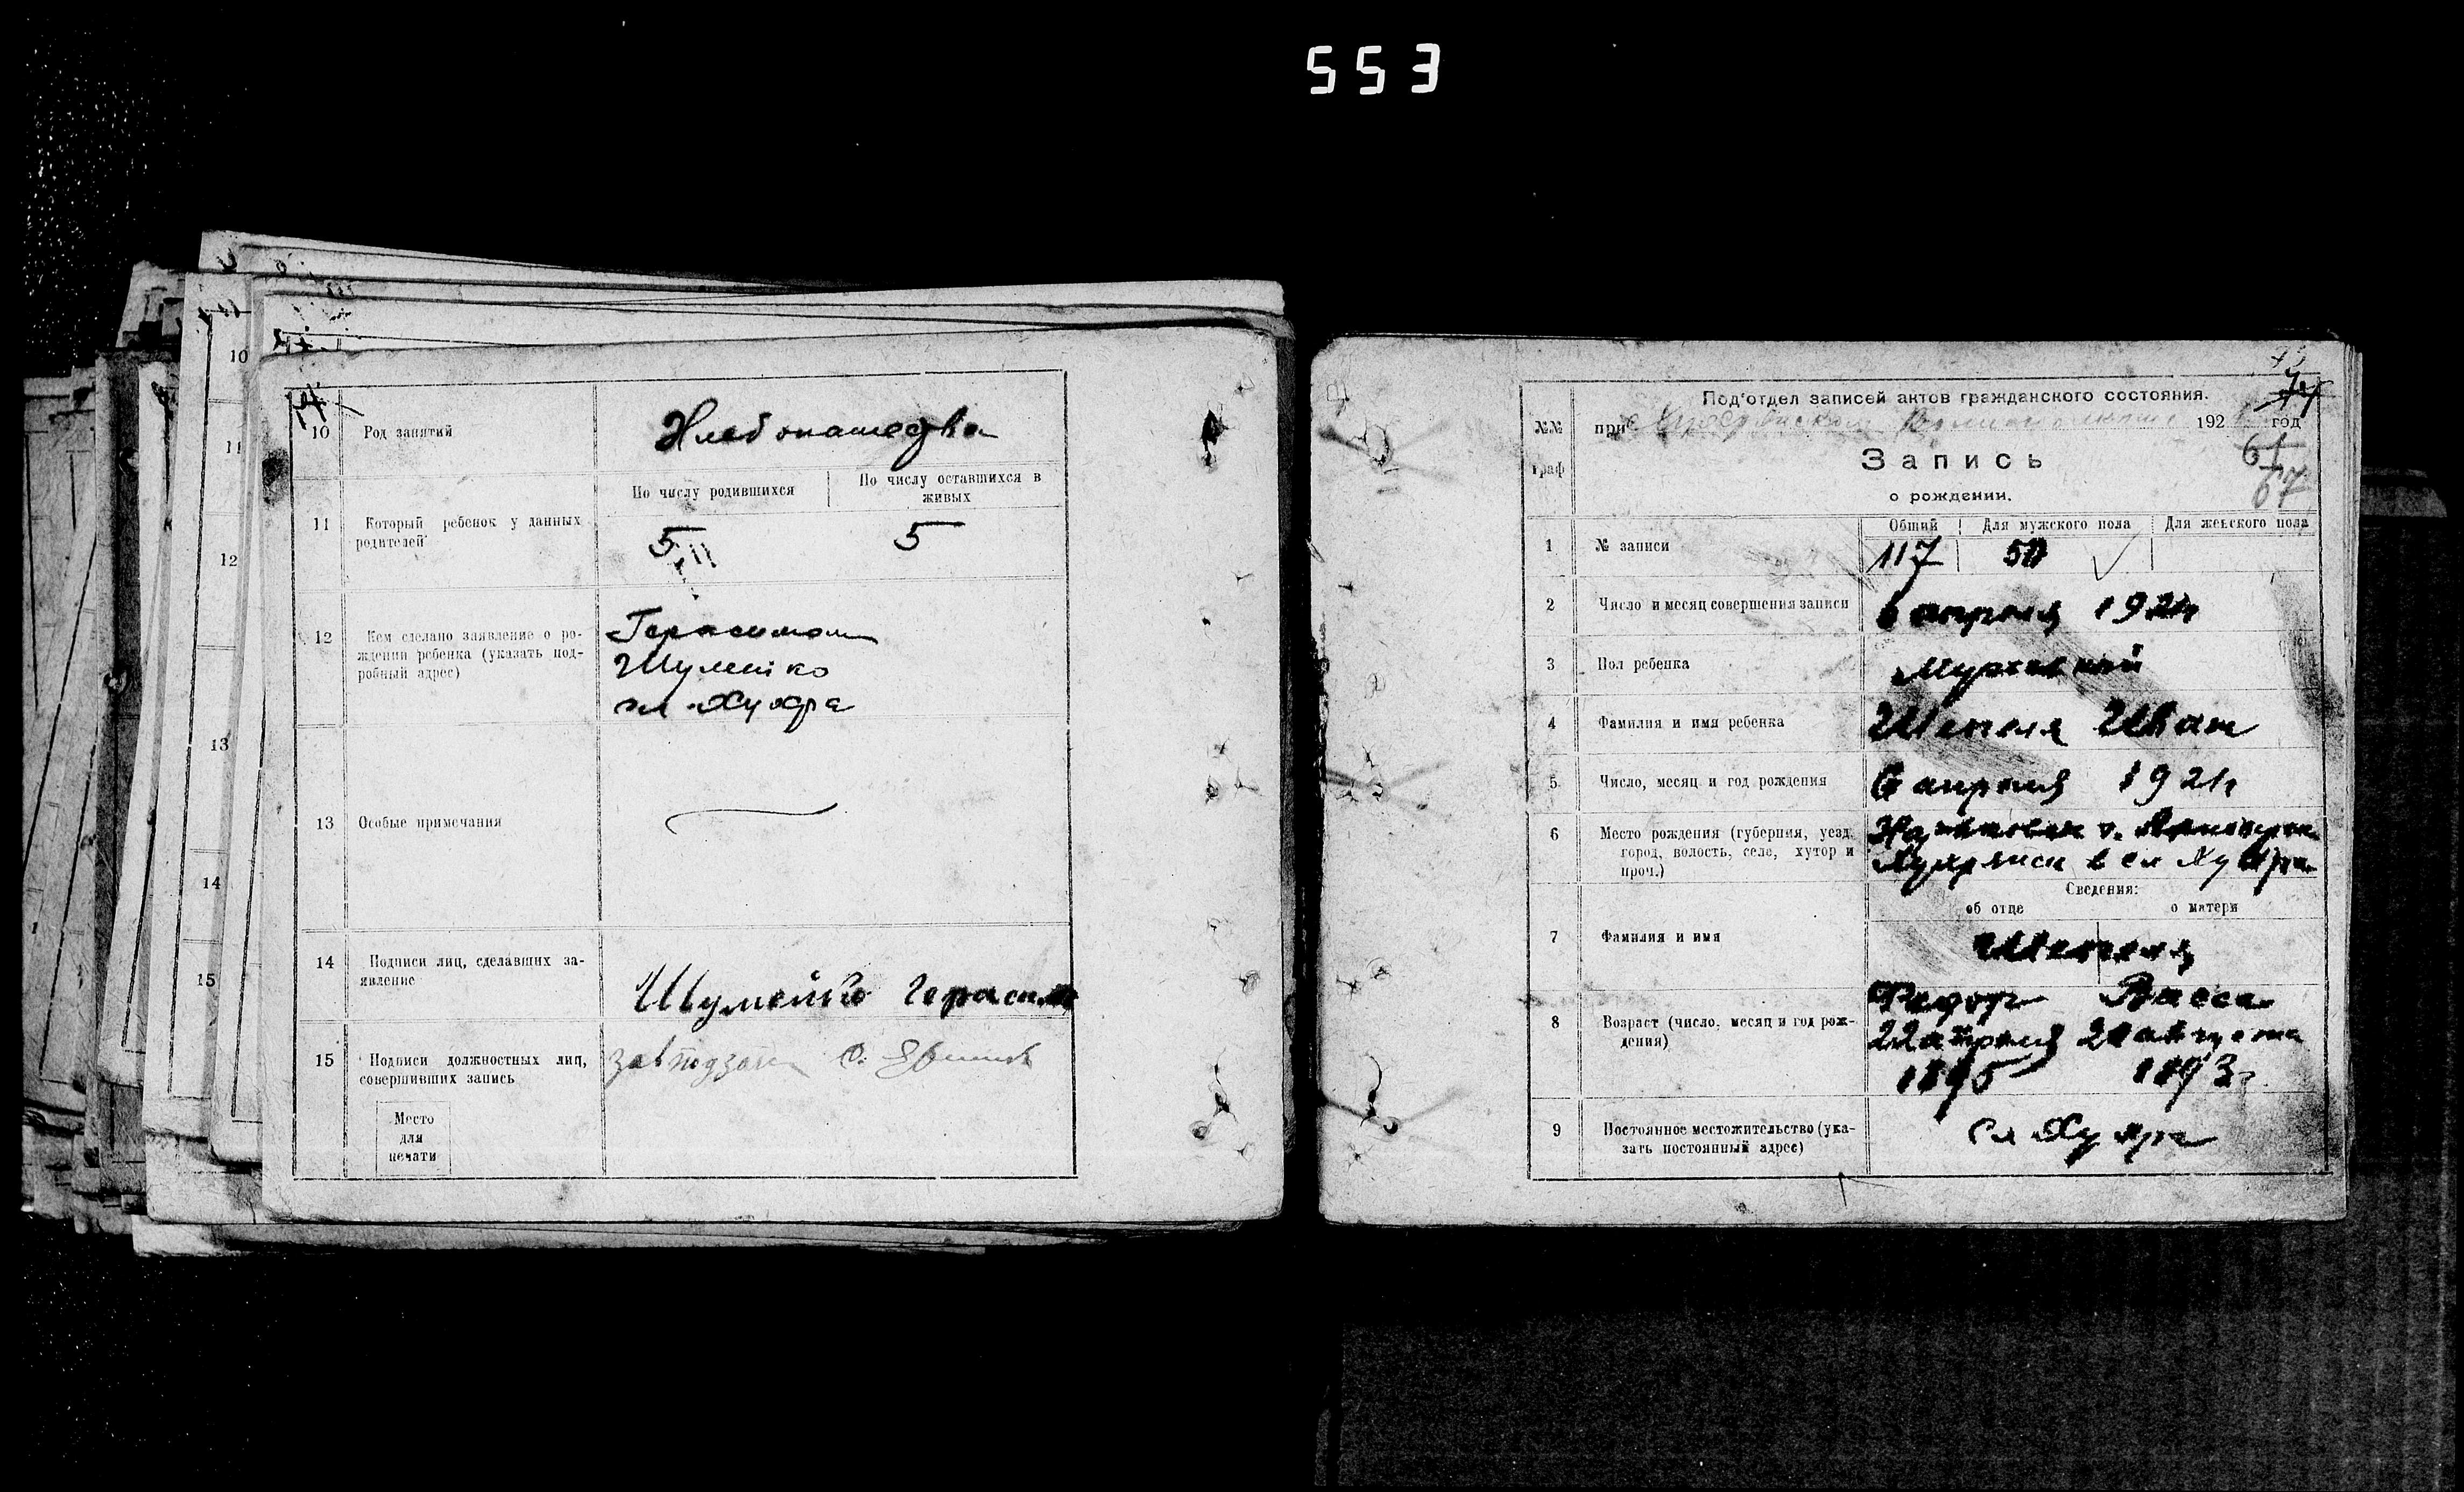 553
10
11
12
13
14
15
10 Род занятий
Хлебопашество
11 Который ребенок у данных
родителей
По числу родившихся
По числу оставшихся в
живых
5
5
12 Кем сделано заявление о ро-
ждении ребенка (указать под-
робный адрес)
Герасимом
Шумейко
сл.
13 Особые примечания
14 Подписи лиц, сделавших за-
явление
Шумейко Герасим
15 Подписи должностных лиц,
совершивших запись
Место
для
печати
№№
граф
Под'отдел записей актов гражданского состояния.
при 192 год
Запись
о рождении.
61
67
1 № записи
Общий Для мужского пола Для женского пола
117
2 Число и месяц совершения записи
6 апреля 1921
3 Пол ребенка
Мужской
4 Фамилия и имя ребенка
Шепеля Иван
5 Число, месяц и год рождения
6 апреля 1921
6 Место рождения (губерния, уезд,
город, волость, село, хутор и
проч.)
Сведения:
об отце о матери
7 Фамилия и имя
Шепеля
Федор Васса
8 Возраст (число, месяц и год рож-
дения)
22 апреля августа
1895 1893
9 Постоянное местожительство (ука-
зать постоянный адрес)
сл